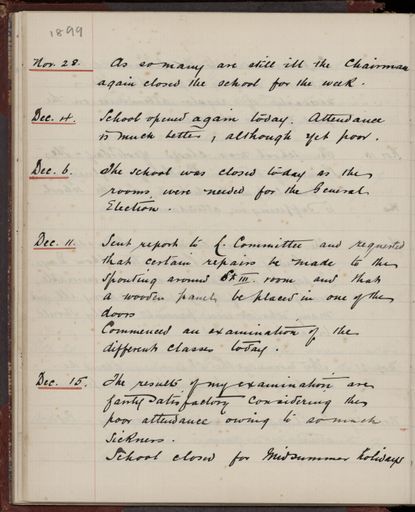 1899
Nov. 28. As so many are still ill the Chairman
again closed the school for the week.
Dec. 4. School opened again today. Attendance
is much better, although yet poor.
Dec. 6. The school was closed today as the
rooms were needed for the General
Election.
Dec. 11. Sent report to S. Committee and requested
that certain repairs be made to the
spouting around St III. room and that
a wooden panel be placed in one of the
doors
Commenced an examination of the
different classes today.
Dec. 15. The results of my examination are
fairly satisfactory considering the
poor attendance owing to so much
sickness.
School closed for Midsummer holidays